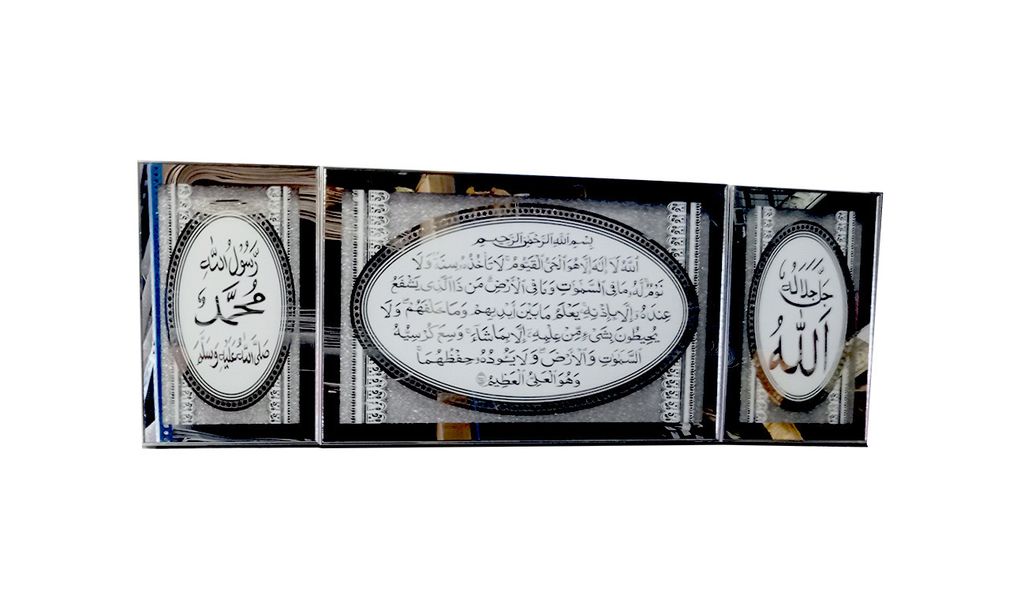 جل جلاله
الله
بسم الله الرحمن الرحيم
الله لا إله إلا هو الحي القيوم لا تأخذه سنة ولا
نوم له ما في السموت وما في الأرض من ذا الذي يشفع
عنده إلا بإذنه يعلم ما بين أيديهم وما خلفهم ولا
يحيطون بشيء من علمه إلا بما شاء وسع كرسيه
السموت والأرض ولا يئوده حفظهما
وهو العلي العظيم
رسول الله
محمد
صلى الله عليه وسلم